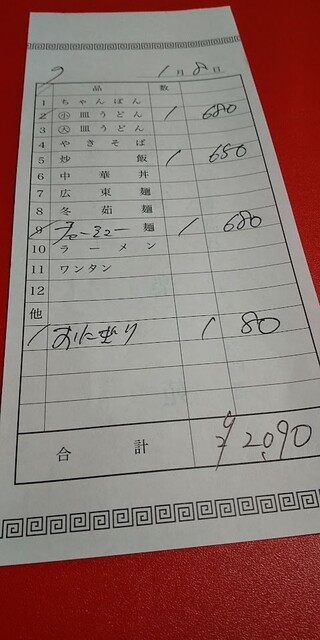 7
1月8日
品 数
1 ちゃんぽん
2 ㊥皿うどん 1 680
3 大皿うどん
4 やきそば
5 炒飯 1 650
6 中華丼
7 広東麺
8 冬茹麺
9 麺 1 680
10 ラーメン
11 ワンタン
12
他
おにぎり 1 80
合計 ¥2,090